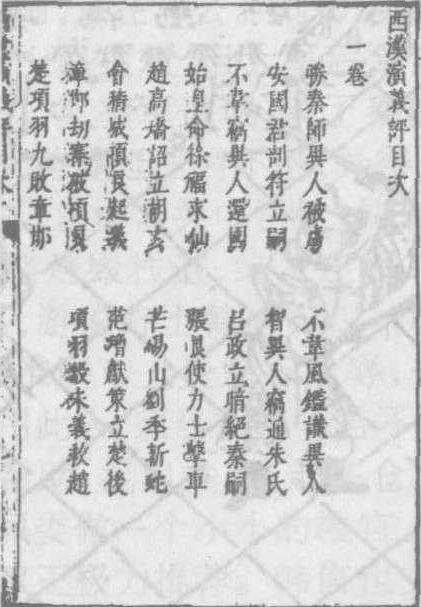 西漢演義評目次
一卷
勝秦師異人被虜 不韋風鑑識異人
安國君剖符立嗣 智異人竊通朱氏
不韋竊異人還國 呂政立暗絕秦嗣
始皇命徐福求仙 張良使力士擊車
趙高矯詔立胡亥 芒碭山劉季斬蛇
會稽城項梁起義 范增獻策立楚後
章邯劫寨破項梁 項羽殺宋義救趙
楚項羽九敗章邯